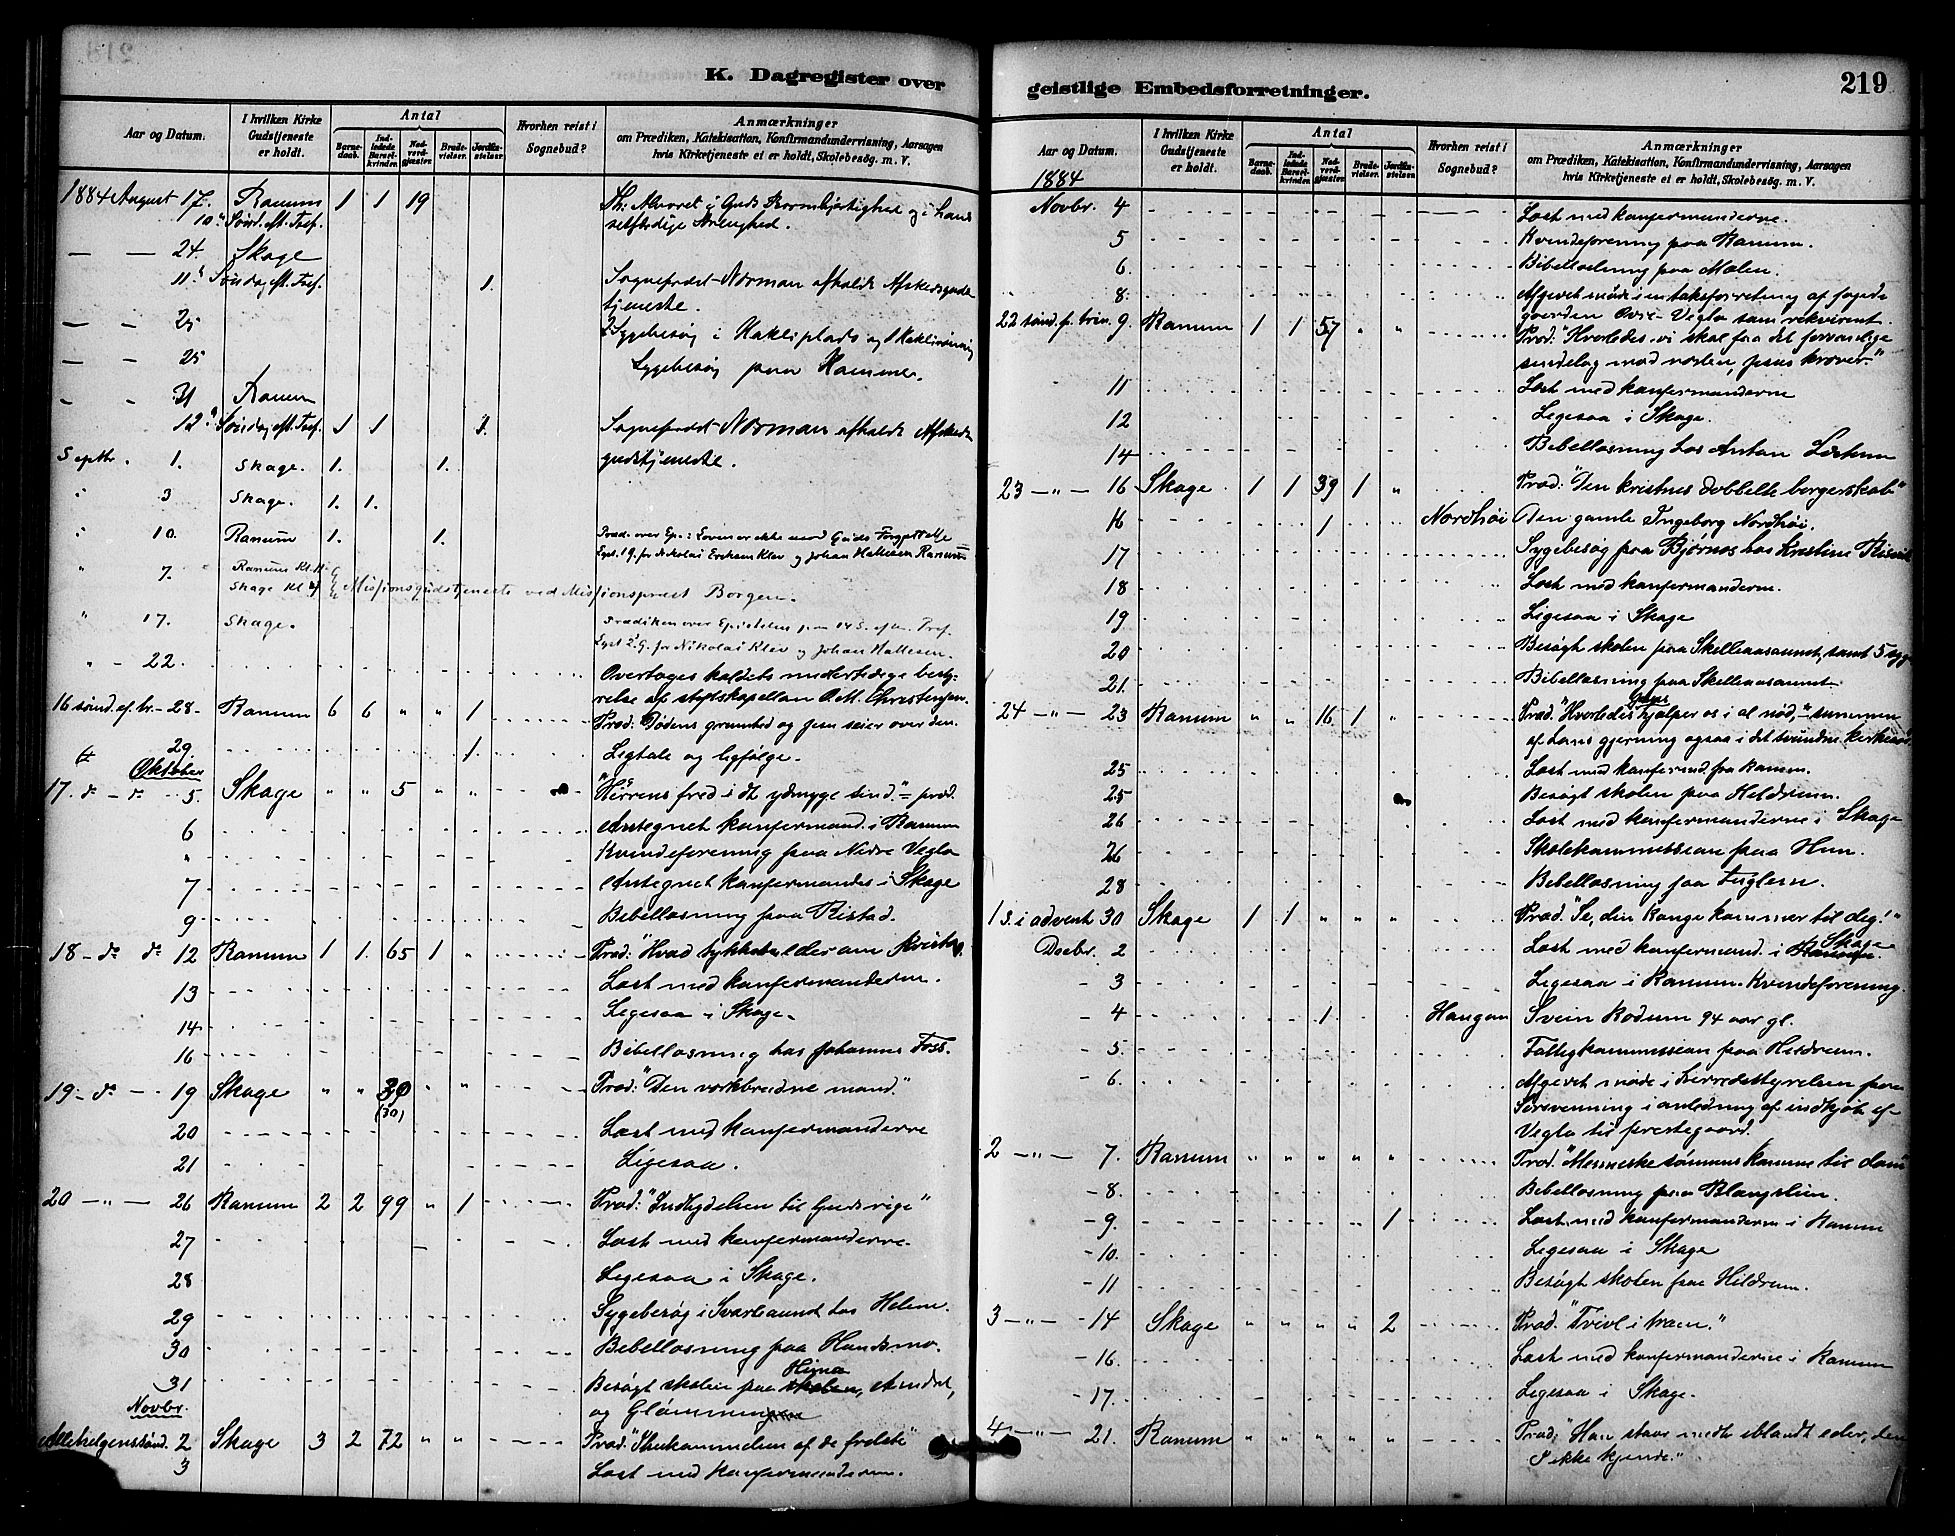 K. Dagregister over
Aar og Datum.
I hvilken Kirke Gudstjeneste er holdt.
Antal
Barnedaab.
Indledede Barselkvinder.
Nadverdgjæster.
Brudevielser.
Jordfæstelser.
Hvorhen reist i Sognebud?
Anmærkninger
om Prædiken, Katekisation, Konfirmandundervisning, Aarsagen
hvis Kirketjeneste ei er holdt, Skolebesøg. m. V.
1884 August 17. Ranum 1 1 19 Th: Alvoret i Guds Barmhjertighed og i hans
10de Sønd. eft. Tref.
— — 24. Skage
11te Søndag eft. Tref. 1. Sogneprest Norman afholdt Afskedsguds-
tjeneste.
— — 25 Sygebesøg i Hakliplads og
— — 25 Sygebesøg paa Hammer.
- - 31 Ranum
12te Søndag eft. Tref. 1 1 1. Sogneprest Norman afholdt Afskeds
gudstjeneste.
Septbr. 1. Skage. 1. 1.
" 3 Skage. 1. 1.
" 10. Ranum 1. 1. Præd. over Ep.: Loven er ikke mod Guds Forjættelse
Lyst 1 G. for Nikolai Eriksen Klev og Johan Hallesen Ranum
" 7. Ranum Kl. 11
Skage Kl. 4 Missionsgudstjeneste ved Missionsprest Borgen.
" 17. Skage. Prædiken over Epistelen paa 14 S. efter Tref.
Lyst 2 G. for Nikolai Klev og Johan Hallesen.
" - 22. Overtages kaldets midlertidige besty-
relse af stiftskapellan O. M. Christensen.
16 sønd. ef. tr. - 28 - Ranum 6 6 " " 1 Præd: Dødens grumhed og Jesu seier over den.
29 1. Ligtale og ligfølge.
Oktober
17. do - do 5. Skage " " 5 " " "Herrens fred i et ydmyge sind." = præd.
6 Antegnet konfermand. i Ranum
" Kvindeforening paa Nedre Vegla
7 Antegnet konfermandes i Skage
9 Bibellæsning paa Ristad.
18 - do do 12 Ranum 1 1. 65 1 " Præd: "Hvad tykkes eder om Kristus.
13 Læst med konfermanderne.
14 Ligesaa i Skage.
16 Bibellæsning hos Johannes Foss.
19 - do - 19 Skage " " 39 " " Præd: "Den værkbrudne mand."
(30)
20 Læst med konfermanderne
21 Ligesaa.
20 — " — 26 Ranum 2 2 99 " 1 Præd: "Indbydelsen til Guds rige"
27 Læst med konfermanderne.
28 Ligesaa i Skage.
29 Sygebesøg i Svarliaunet hos Helene.
30 Bibellæsning paa Hundsmo.
31 Besøgt skolen paa Himo,
Novbr. og Glømmen
Allehelgenssønd. 2 Skage 3 2 72 " " Præd: "Ihukommelsen af de frelste"
3 Læst med konfermanderne.
geistlige Embedsforretninger.
219
Aar og Datum.
I hvilken Kirke Gudstjeneste er holdt.
Antal
Barnedaab.
Indledede Barselkvinder.
Nadverdgjæster.
Brudevielser.
Jordfæstelser.
Hvorhen reist i Sognebud?
Anmærkninger
om Prædiken, Katekisation, Konfirmandundervisning, Aarsagen
hvis Kirketjeneste ei er holdt, Skolebesøg. m. V.
1884
Novbr. 4 Læst med konfermanderne.
5 Kvindeforening paa Ranum.
6. Bibellæsning paa Melen.
8. Afgivet møde i en taksforretning af
gaarden Øvre-Vegla som rekvirent.
22 sønd. f. trin. 9. Ranum 1 1 57 " " Præd: "Hvorledes vi skal faa det forsonlige
sindelag mod næsten, Jesus kræver."
11 Læst med konfermanderne
12 Ligesaa i Skage.
14 Bibellæsning hos Anton
23 — " — 16 Skage. 1 1 39 1 " Præd: "Den kristnes dobbelte borgerskab"
16 1 Nordhøi Den gamle Ingeborg Nordhøi.
17 Sygebesøg paa Bjørnes hos Kristine
18 Læst med konfermanderne.
19 Ligesaa i Skage
20 Besøgt skolen paa Skelleaasaunet, samt 5 syge
21. Bibellæsning paa Skelleaasaunet
24 — " — 23 Ranum " " 16. 1 " Præd. "Hvorledes Jesus hjælper os i al nød," summen
af hans gjerning ogsaa i det svundne kirkeaar.
25 Læst med konfermand. fra Ranum.
25 Besøgt skolen paa Heldrum.
26 Læst med konfermanderne i Skage
26 Skolekommission paa Hun.
28 Bibellæsning paa Fuglem.
1 s. i advent 30 Skage 1 1 " " " Præd. "Se, din Konge kommer til deg!"
Decbr. 2 Læst med konfermand. i Skage
- 3 Ligesaa i Ranum. Kvindeforening.
- 4 1 Haugan Svein Rodum 94 aar gl.
- 5. Fattigkommission paa Heldrum.
- 6. Afgivet møde i herredsstyrelsen paa
i anledning af indkjøb af
Vegla til prestegaard.
2 — " — 7. Ranum " " " " " Præd. "Menneskesønnens komme til dom"
- 8. Bibellæsning paa Blengslien.
- 9. 1 Læst med konfermanderne i Ranum
- 10. Ligesaa i Skage
- 11 Besøgt skolen paa Heldrum.
3 — " — - 14 Skage " " " " 2 Præd. "Tvivl i troen."
- 16. Læst med konfermanderne i Ranum
- 17. Ligesaa i Skage.
4 — " — - 21. Ranum " " " " " Præd. "Han staar midt iblandt eder, den
I ikke kjende."